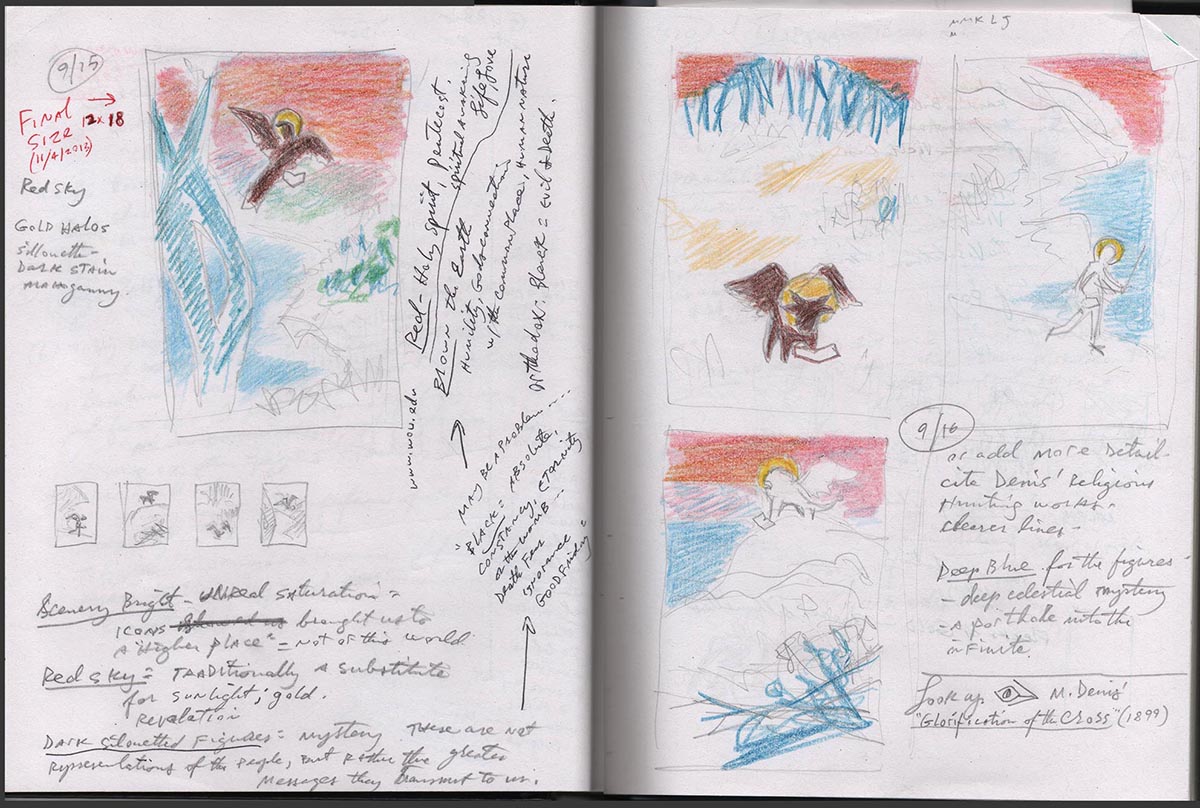 9/15
FINAL
SIZE 12 x 18
(11/4/2013)
Red Sky
GOLD HALOS
Silhouette -
DARK STAIN
MAHOGANNY.
Red - Holy Spirit, Pentecost,
spiritual awakening
life, love
BROWN the Earth
Humility, Gods connection
w/ the common place, Human Nature
Orthodox: Black = Evil + Death.
www.wou.edu
MAY BE A PROBLEM....
"BLACK = ABSOLUTE,
CONSTANCY,
or the WOMB...
Death Fear
ignorance
GOOD Friday"
Scenery Bright - UNREAL SATURATION =
ICONS brought us to
A "Higher place" = NOT of this world
Red sky = TRADITIONALLY A substitute
for sunlight; gold.
Revelation
DARK Silouetted Figures = mystery THESE ARE NOT
Representations of the people, but rather the greater
messages they transmit to us.
MMKLJ
9/16
or add more detail -
cite Denis' Religious
Hunting works -
clearer lines -
Deep Blue for the figures
- deep celestial mystery
- A porthole into the
infinite.
Look up M. Denis'
"Glorification of the CROSS" (1899)